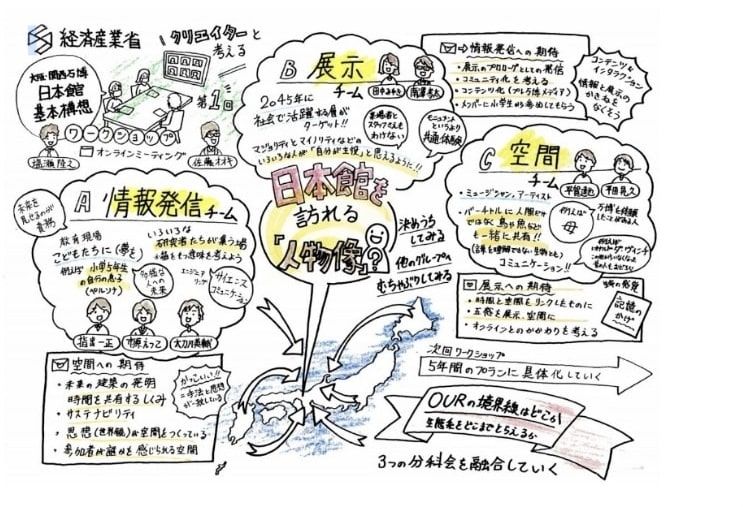 経済産業省
クリエイターと
考える
大阪・関西万博
日本館
基本構想
第1回
ワークショップ
オンラインミーティング
佐藤オオキ
B 展示
チーム
2045年に
社会で活躍する層が
ターゲット!!
マジョリティとマイノリティなどの
いろいろな人が「自分が主役」と思えるように!!
来場者と
スタッフさんも
わけない
モニュメント
というより
共通体験
情報発信への期待
・展示のプロローグとしての発信
・コミュニティ化を考える
・コンテンツ化(プレ万博メディア)
・メンバーに小学生も参加してもらう
コンテンツ&
インタラクション
情報と展示の
かきねを
なくそう
C 空間
チーム
平賀達也
平田晃久
・ミュージシャン、アーティスト
・バーチャルに人間だけ
ではなく鳥や魚など
も一緒に共有!!
コミュニケーション!!
例えば
母
万博を経験
したことがある人
展示への期待
・時間と空間をリンクしたものに
・五感を展示、空間に
・オンラインとのかかわりを考える
記憶の
かけら
A 情報発信
チーム
未来を
見せるのが
責務
教育現場
こどもたちに(夢を)
例えば 小学5年生
の自分の息子
(ペルソナ)
いろいろな
研究者たちが集う場
多様な
人への
未来
エンジニア
リング
サイエンス
コミュニケーション
指出一正
市原えつこ
太刀川英輔
日本館を
訪れる
「人物像」?
決めうち
してみる
他のグループへ
むちゃぶりしてみる
空間への期待
・未来の建築の発明
時間を共有するしくみ
・サステナビリティ
・思想(世界観)が空間をつくっている
・参加者が誰かを感じられる空間
かっこいい!!
=手法と思想
が一致している
次回ワークショップ
5年間のプランに具体化していく
OURの境界線はどこか
生態系をどこまでとらえるか
3つの分科会を融合していく